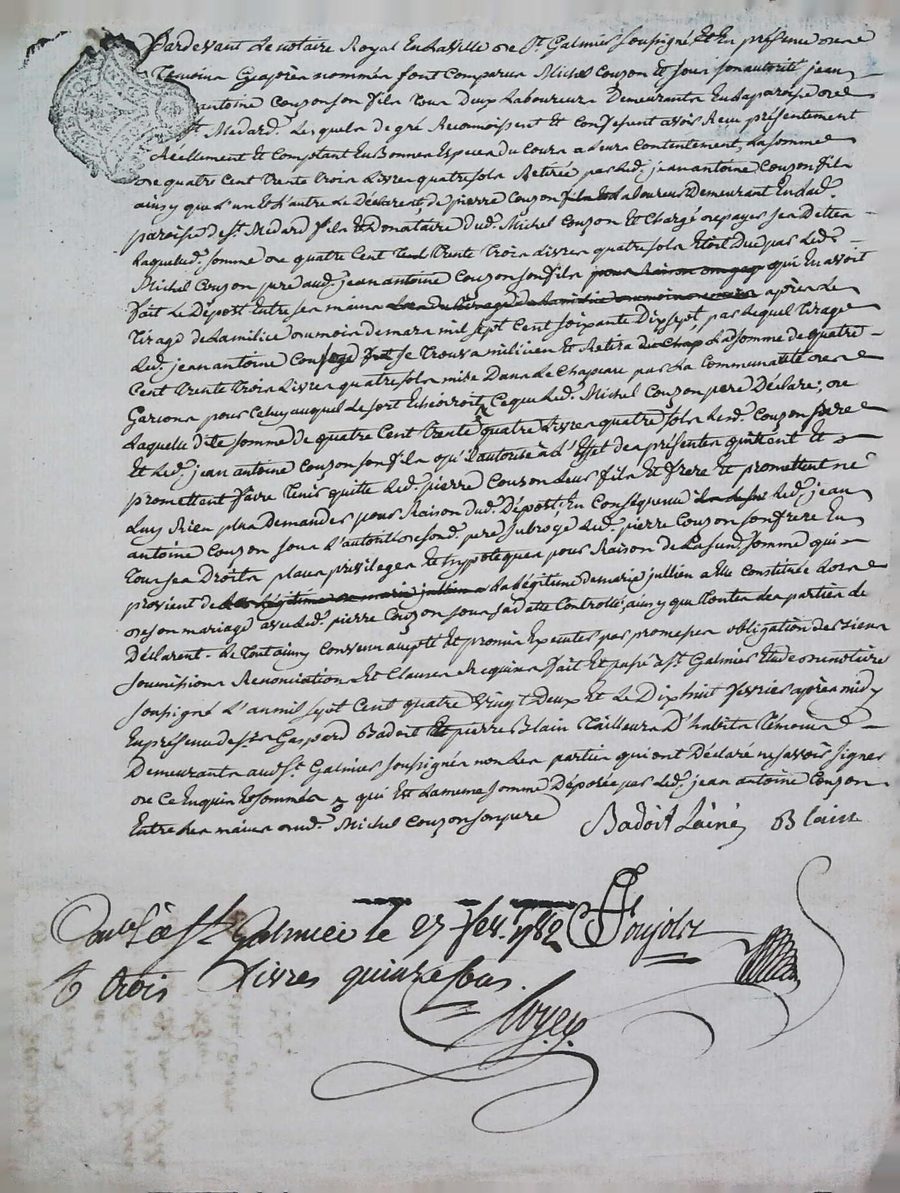 Pardevant Le notaire Royal En La ville de St. Galmier soussigné Et En présence de
Temoins Cy après nommés sont Comparus Michel Couzon Et sous son autorité jean
antoine Couzon son fils tous deux Laboureurs Demeurants En La paroisse de
St. Medard, Lesquels de gré Reconnoissent Et Confessent avoir Reçu présentement
Réellement Et Comptant En Bonnes Especes du Cours a Leur Contentement, La somme
de quatre Cent trente trois Livres quatre sols Retirée par Led. jean antoine Couzon fils
ainsy que L'un Et L'autre Le Déclarent de pierre Couzon fils Laboureur Demeurant En Lad.
paroisse de St. Medard fils Et Donataire dud. Michel Couzon Et Chargé de payer ses Dettes
Laquelle d. somme de quatre Cent trente trois Livres quatre sols Etoit Due par Led.
Michel Couzon pere aud. jean antoine Couzon son fils qui En avoit
fait Le Dépost Entre ses mains après Le
tirage de La milice du mois de mars mil sept Cent soixante Dix sept, par Lequel tirage
Led. jean antoine Couzon se trouva milicien Et Retira La somme de quatre
Cent trente trois Livres quatre sols mise Dans Le Chapeau par La Communauté de
Garçons pour Celuy auquel Le sort Echeoiroit, Ce que Led. Michel Couzon pere Déclare; de
Laquelle dite somme de quatre Cent trente quatre Livres quatre sols Lesd. Couzon pere
Et Led. jean antoine Couzon son fils qu'il autorise a L'Effet des présentes quittent Et
promettent faire tenir quitte Led. pierre Couzon Leur fils Et frere Et promettent ne
Luy Rien plus Demander pour Raison dud. Dépost; En Conséquence Led. jean
antoine Couzon sous L'autorité de sond. pere subroge Led. pierre Couzon son frere En
tous ses Droits places privileges Et hypoteques pour Raison de La susd. somme qui
provient de La Légitime de marie jullien a Elle Constituée Lors
de son mariage avec Led. pierre Couzon sous sa datte Controllé, ainsy que toutes Les parties Le
Déclarent. Le tout ainsy Convenu accepté Et promis Executer par promesses obligation des biens
soumissions Renonciations Et Clauses Requises fait Et passé a St. Galmier Etude du notaire
soussigné L'an mil sept Cent quatre Vingt Deux Et Le Dix huit fevrier après midy
En présence de Srs. Gaspard Badoit Et pierre Blain Tailleurs D'habits Témoins
Demeurants aud. St. Galmier soussignés non Les parties qui ont Déclaré ne sçavoir signer
de Ce Enquis Et sommés qui Est La meme somme Déposée par Led. jean antoine Couzon
Entre Les mains dud. Michel Couzon son pere
Badoit Lainé Blain
Conlé à St Galmier le 27 fev. 1782 Poujolx
R trois Livres quinze sous.